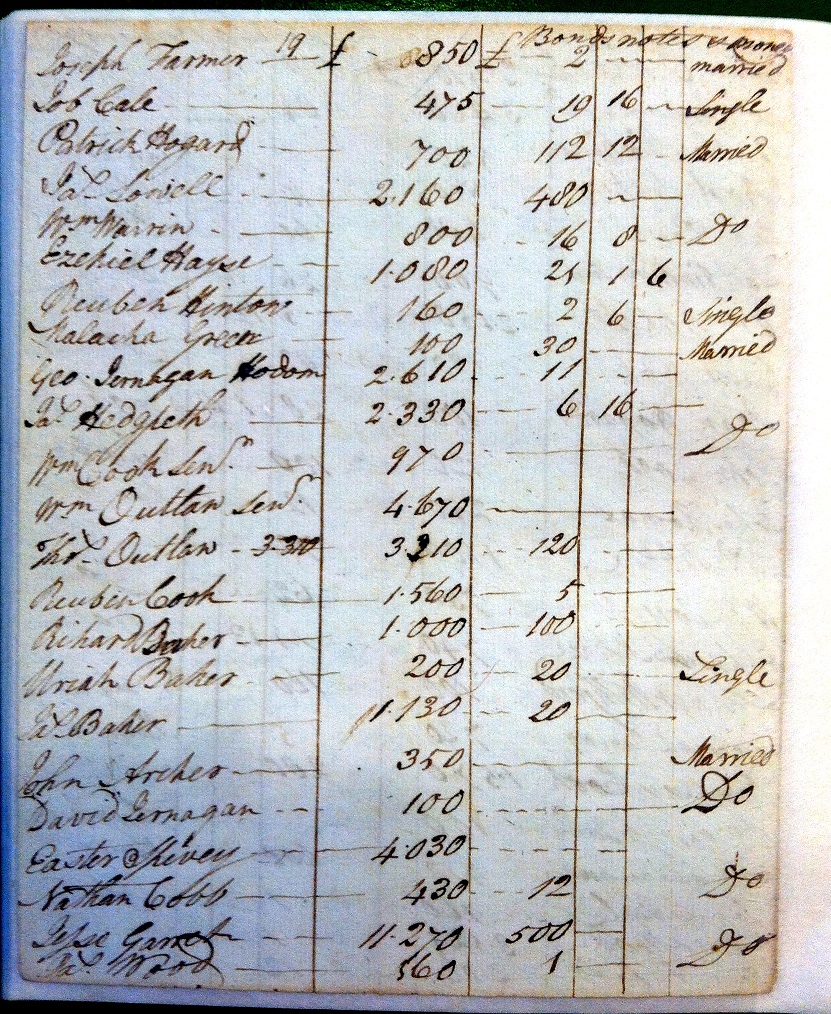 19 £ Bonds notes & money
Joseph Farmer £ 850 £ 2 married
Job Cale 475 19 16 Single
Patrick Hogard 700 112 12 Married
Jas Lowell 2.160 480
Wm Warrin 800 16 8 Do
Ezekiel Hayse 1.080 21 1 6
Reuben Hinton 160 2 6 Single
Malacha Green 100 30 Married
Geo. Jernagan Hodom 2.610 11
Jas Hedgpeth 2.330 6 16
Wm Cook Senr 970 Do
Wm Outlan Senr 4.670
Thos Outlan 3.310 3310 120
Reuben Cook 1.560 5
Richard Baker 1.000 100
Uriah Baker 200 20 Single
Jas Baker 1.130 20
John Archer 350 Married
David Jernagan 100 Do
Easter Spivey 4030
Nathan Cobb 430 12 Do
Jesse Garrot 11.270 500
Jas Wood 560 1 Do